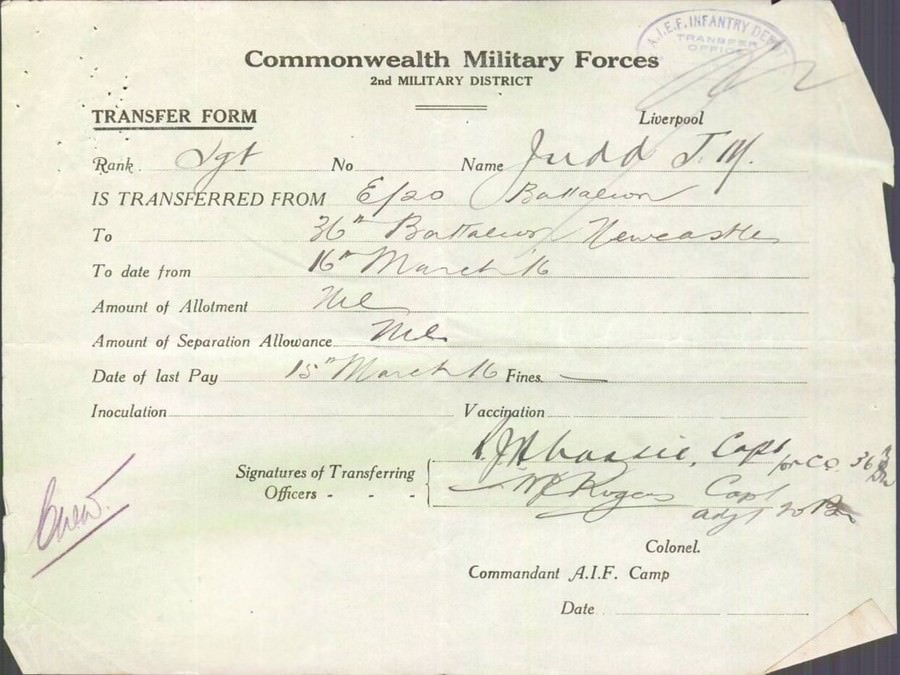 A.I.E.F. INFANTRY DEPOT
TRANSFER
OFFICE
Commonwealth Military Forces
2nd MILITARY DISTRICT
TRANSFER FORM
Liverpool
Rank Sgt No Name Judd J. M.
IS TRANSFERRED FROM E/20 Battalion
To 36th Battalion Newcastle
To date from 16th March 16
Amount of Allotment Nil
Amount of Separation Allowance Nil
Date of last Pay 15th March 16 Fines —
Inoculation Vaccination
Capt for C.O. 36 Bn
Signatures of Transferring
Officers - - -
Rogers Capt
adjt 20 Bn
Colonel.
Commandant A.I.F. Camp
Date